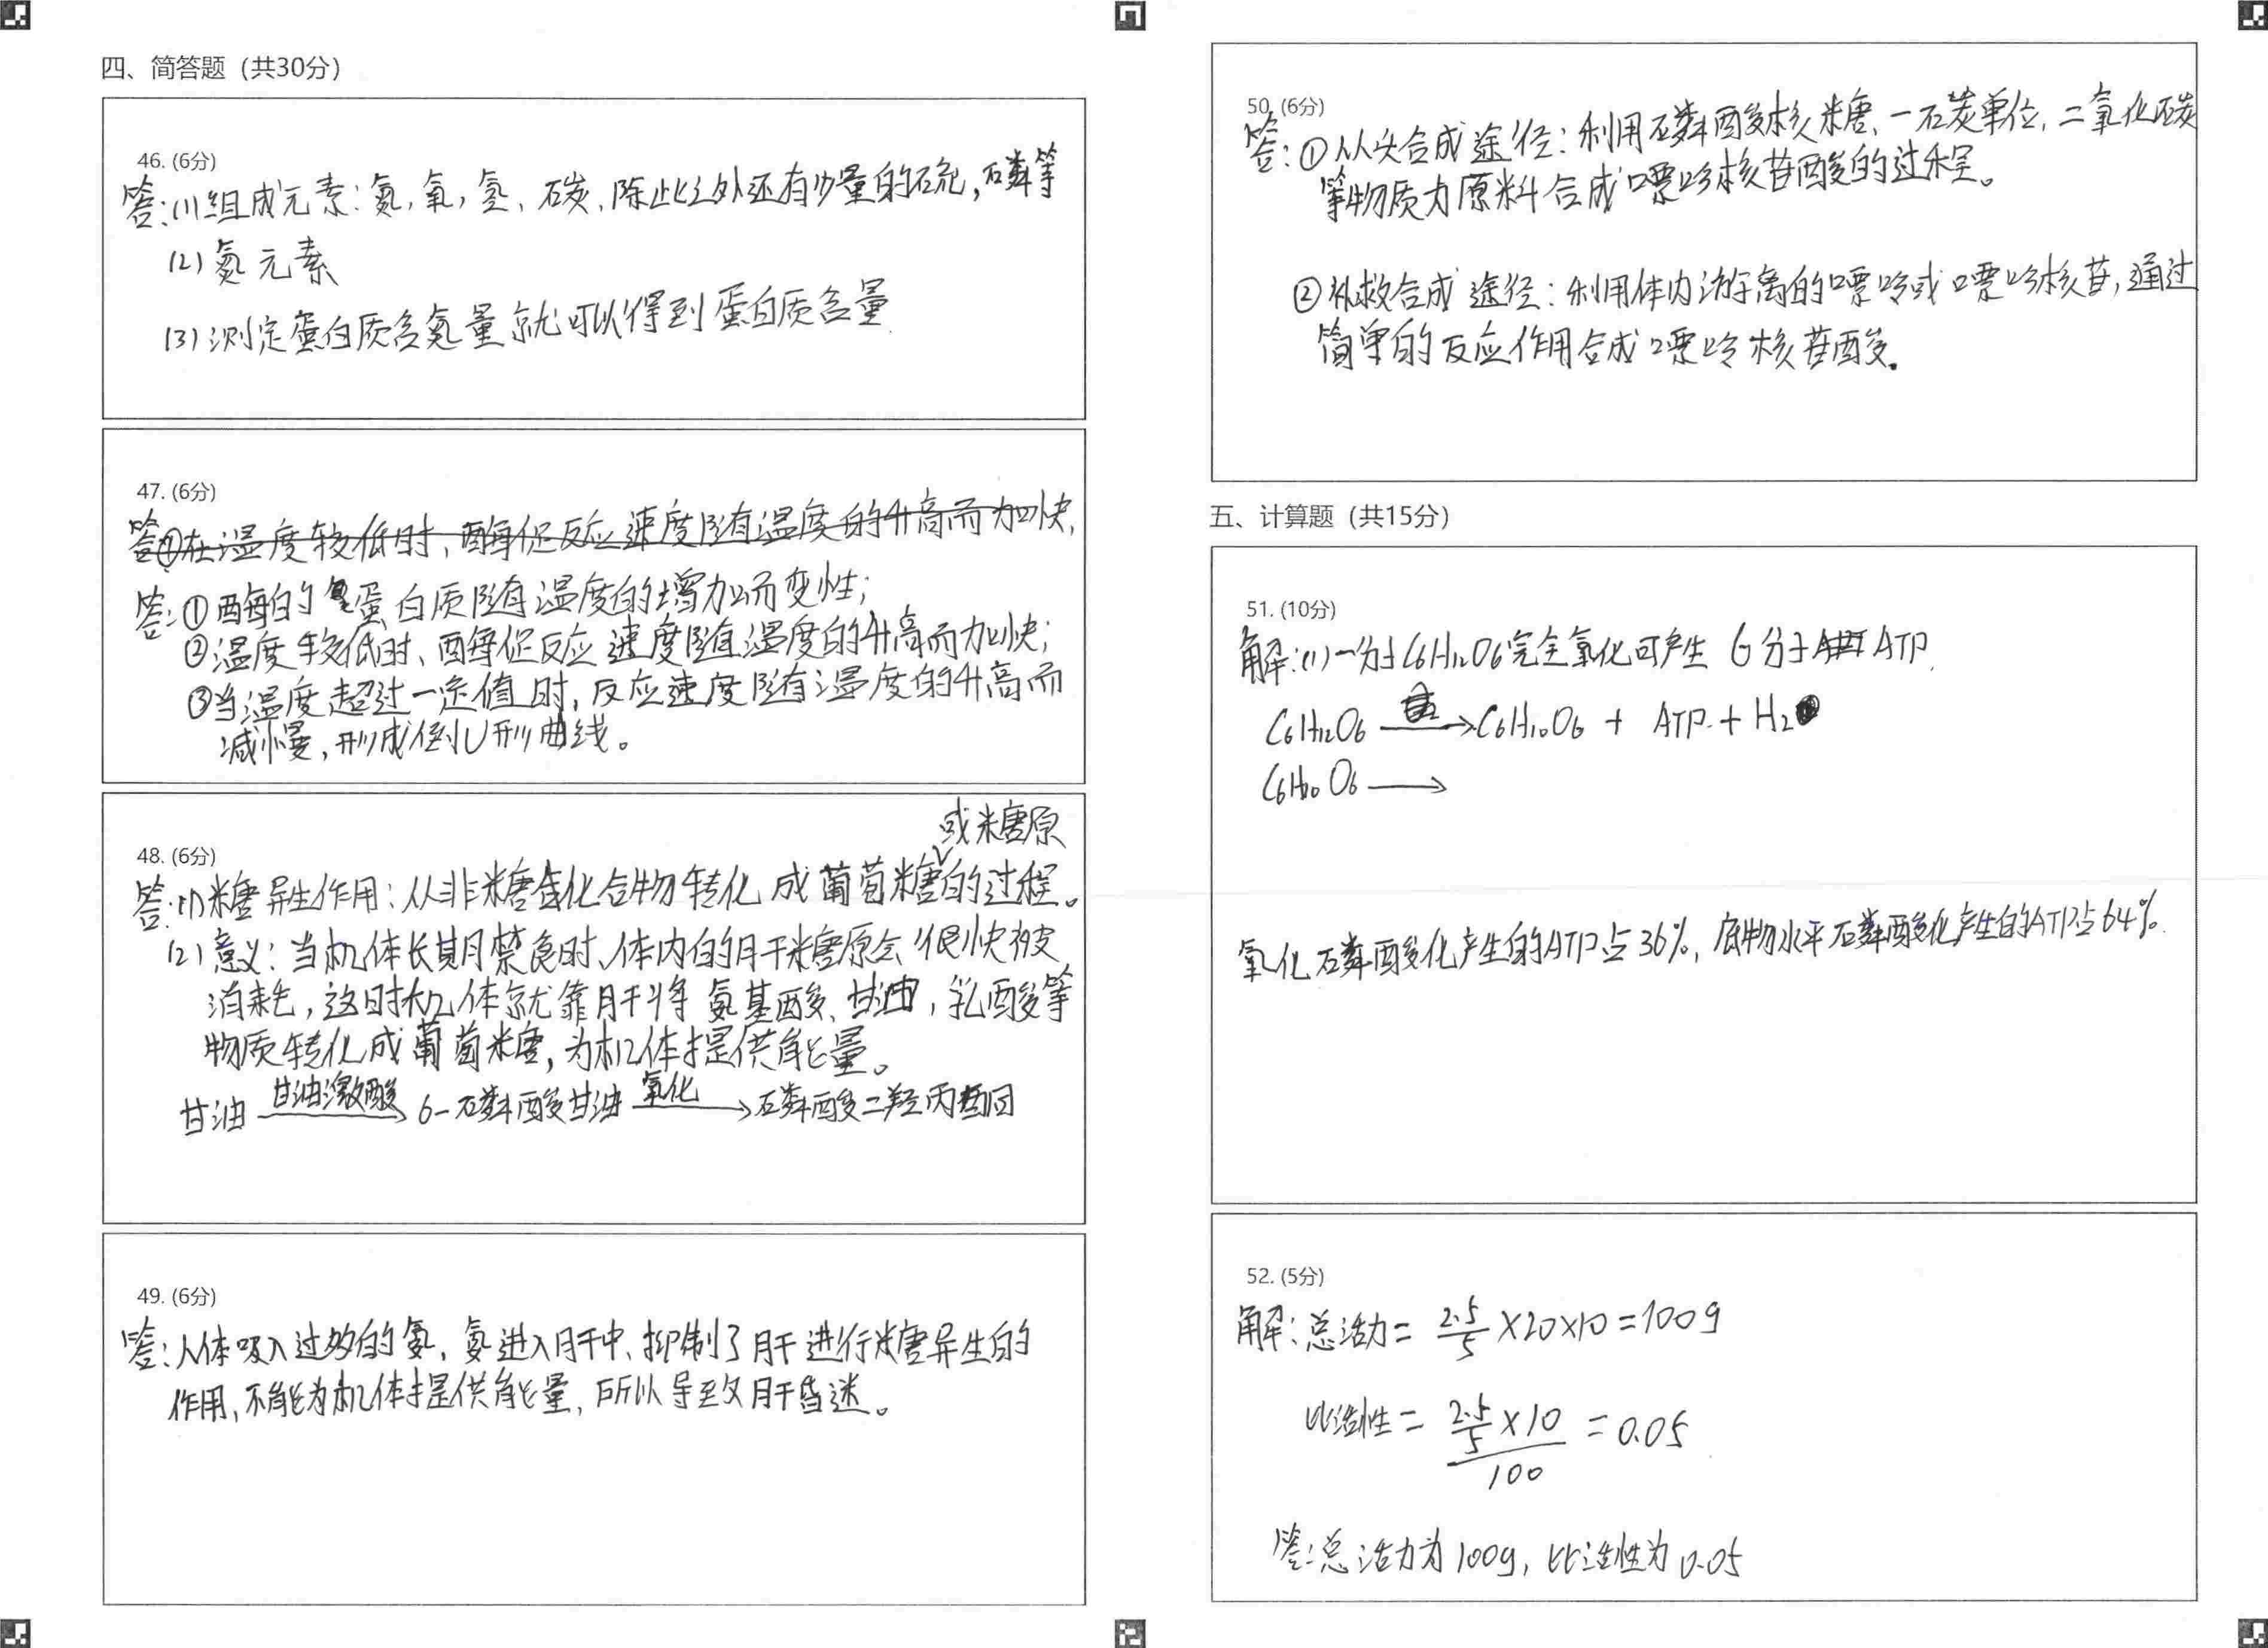 四、简答题（共30分）
46. (6分)
答:(1)组成元素：氮,氧,氢、碳、除此之外还有少量的硫,磷等
(2)氮元素
(3)测定蛋白质含氮量就可以得到蛋白质含量.
47. (6分)
答①在温度较低时、酶促反应速度随着温度的升高而加快,
答:①酶的蛋白质随温度的增加而变性;
②温度较低时、酶促反应速度随着温度的升高而加快;
③当温度超过一定值时,反应速度随着温度的升高而
减慢,形成倒U形曲线。
48. (6分)
或糖原
答:(1)糖异生作用:从非糖化合物转化成葡萄糖的过程。
(2)意义:当机体长期禁食时、体内的肝糖原会很快被
消耗,这时机体就靠肝将氨基酸、甘油,乳酸等
物质转化成葡萄糖,为机体提供能量。
甘油 甘油激酸→ 6-磷酸甘油 氧化→ 磷酸二羟丙酮
49. (6分)
答:人体吸入过多的氨,氨进入肝中、抑制了肝进行糖异生的
作用,不能为机体提供能量,所以导致肝昏迷。
50. (6分)
答:①从头合成途径:利用磷酸核糖、一碳单位,二氧化碳
等物质为原料合成嘌呤核苷酸的过程。
②补救合成途径:利用体内游离的嘌呤或嘌呤核苷,通过
简单的反应作用合成嘌呤核苷酸.
五、计算题（共15分）
51. (10分)
解:(1)一分子C6H12O6完全氧化可产生 6分子ATP.
C6H12O6 → C6H10O6 + ATP + H2
C6H10O6 →
氧化磷酸化产生的ATP占36%,底物水平磷酸化产生的ATP占64%.
52. (5分)
解:总活力= 2.5/5 ×20×10=100g
比活性= (2.5/5 ×10)/100 =0.05
答:总活力为100g,比活性为0.05